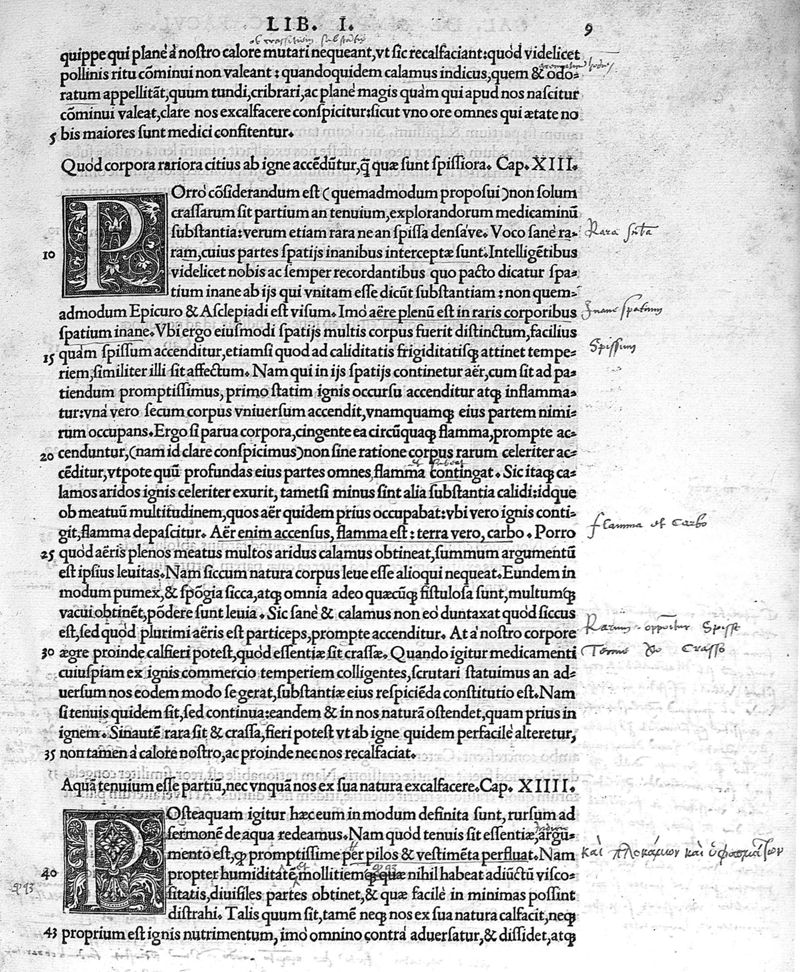 LIB. I. 9
quippe qui planè à nostro calore mutari nequeant, vt sic recalfaciant: quòd videlicet
pollinis ritu cõminui non valeant: quandoquidem calamus indicus, quem & odo-
ratum appellitãt, quum tundi, cribrari, ac planè magis quàm qui apud nos nascitur
cõminui valeat, clare nos excalfacere conspicitur: sicut vno ore omnes qui ætate no
5 bis maiores sunt medici confitentur.
Quòd corpora rariora citius ab igne accẽdũtur, q̃ quæ sunt spissiora. Cap. XIII.
POrrò cõsiderandum est (quemadmodum proposui) non solum
crassarum sit partium an tenuium, explorandorum medicaminũ
substantia: verum etiam rara ne an spissa densáve. Voco sanè ra-
Rara subſta
10 ram, cuius partes spatijs inanibus interceptæ sunt. Intelligẽtibus
videlicet nobis ac semper recordantibus quo pacto dicatur spa-
tium inane ab ijs qui vnitam esse dicũt substantiam: non quem-
admodum Epicuro & Asclepiadi est visum. Imò aëre plenũ est in raris corporibus
Inane spatium
spatium inane. Vbi ergo eiusmodi spatijs multis corpus fuerit distinctum, facilius
15 quàm spissum accenditur, etiamsi quod ad caliditatis frigiditatisq; attinet tempe-
Spissum
riem, similiter illi sit affectum. Nam qui in ijs spatijs continetur aër, cum sit ad pa-
tiendum promptissimus, primo statim ignis occursu accenditur atq; inflamma-
tur: vnà vero secum corpus vniuersum accendit, vnamquamq; eius partem nimi-
rum occupans. Ergo si parua corpora, cingente ea circũquaq; flamma, prompte ac-
20 cenduntur, (nam id clare conspicimus) non sine ratione corpus rarum celeriter ac-
cẽditur, vtpote quũ profundas eius partes omnes flamma contingat. Sic itaq; ca-
lamos aridos ignis celeriter exurit, tametsi minus sint alia substantia calidi: idque
ob meatuũ multitudinem, quos aër quidem prius occupabat: vbi vero ignis conti-
git, flamma depascitur. Aër enim accensus, flamma est: terra vero, carbo. Porro
flamma et Carbo
25 quòd aëris plenos meatus multos aridus calamus obtineat, summum argumentũ
est ipsius leuitas. Nam siccum natura corpus leue esse alioqui nequeat. Eundem in
modum pumex, & spõgia sicca, atq; omnia adeo quæcũq; fistulosa sunt, multumq;
vacui obtinẽt, põdere sunt leuia. Sic sanè & calamus non eò duntaxat quòd siccus
est, sed quòd plurimi aëris est particeps, prompte accenditur. At à nostro corpore
Rarum opponitur Spisso
30 ægre proinde calfieri potest, quòd essentiæ sit crassæ. Quando igitur medicamenti
Tenue Crasso
cuiuspiam ex ignis commercio temperiem colligentes, scrutari statuimus an ad-
uersum nos eodem modo se gerat, substantiæ eius respiciẽda constitutio est. Nam
si tenuis quidem sit, sed continua: eandem & in nos naturã ostendet, quam prius in
ignem. Sin autẽ rara sit & crassa, fieri potest vt ab igne quidem perfacile alteretur,
35 non tamen à calore nostro, ac proinde nec nos recalfaciat.
Aquã tenuium esse partiũ, nec vnquã nos ex sua natura excalfacere. Cap. XIIII.
POsteaquam igitur hæc eum in modum definita sunt, rursum ad
sermonẽ de aqua redeamus. Nam quòd tenuis sit essentiæ, argu-
mento est, q; promptissime per pilos & vestimẽta perfluat. Nam
καὶ πλοκάμων καὶ ὑφασμάτων
40 propter humiditatẽ, mollitiemq; quæ nihil habeat adiũctũ visco-
sitatis, diuisiles partes obtinet, & quæ facilè in minimas possint
distrahi. Talis quum sit, tamẽ neq; nos ex sua natura calfacit, neq;
43 proprium est ignis nutrimentum, imò omnino contrà aduersatur, & dissidet, atq;